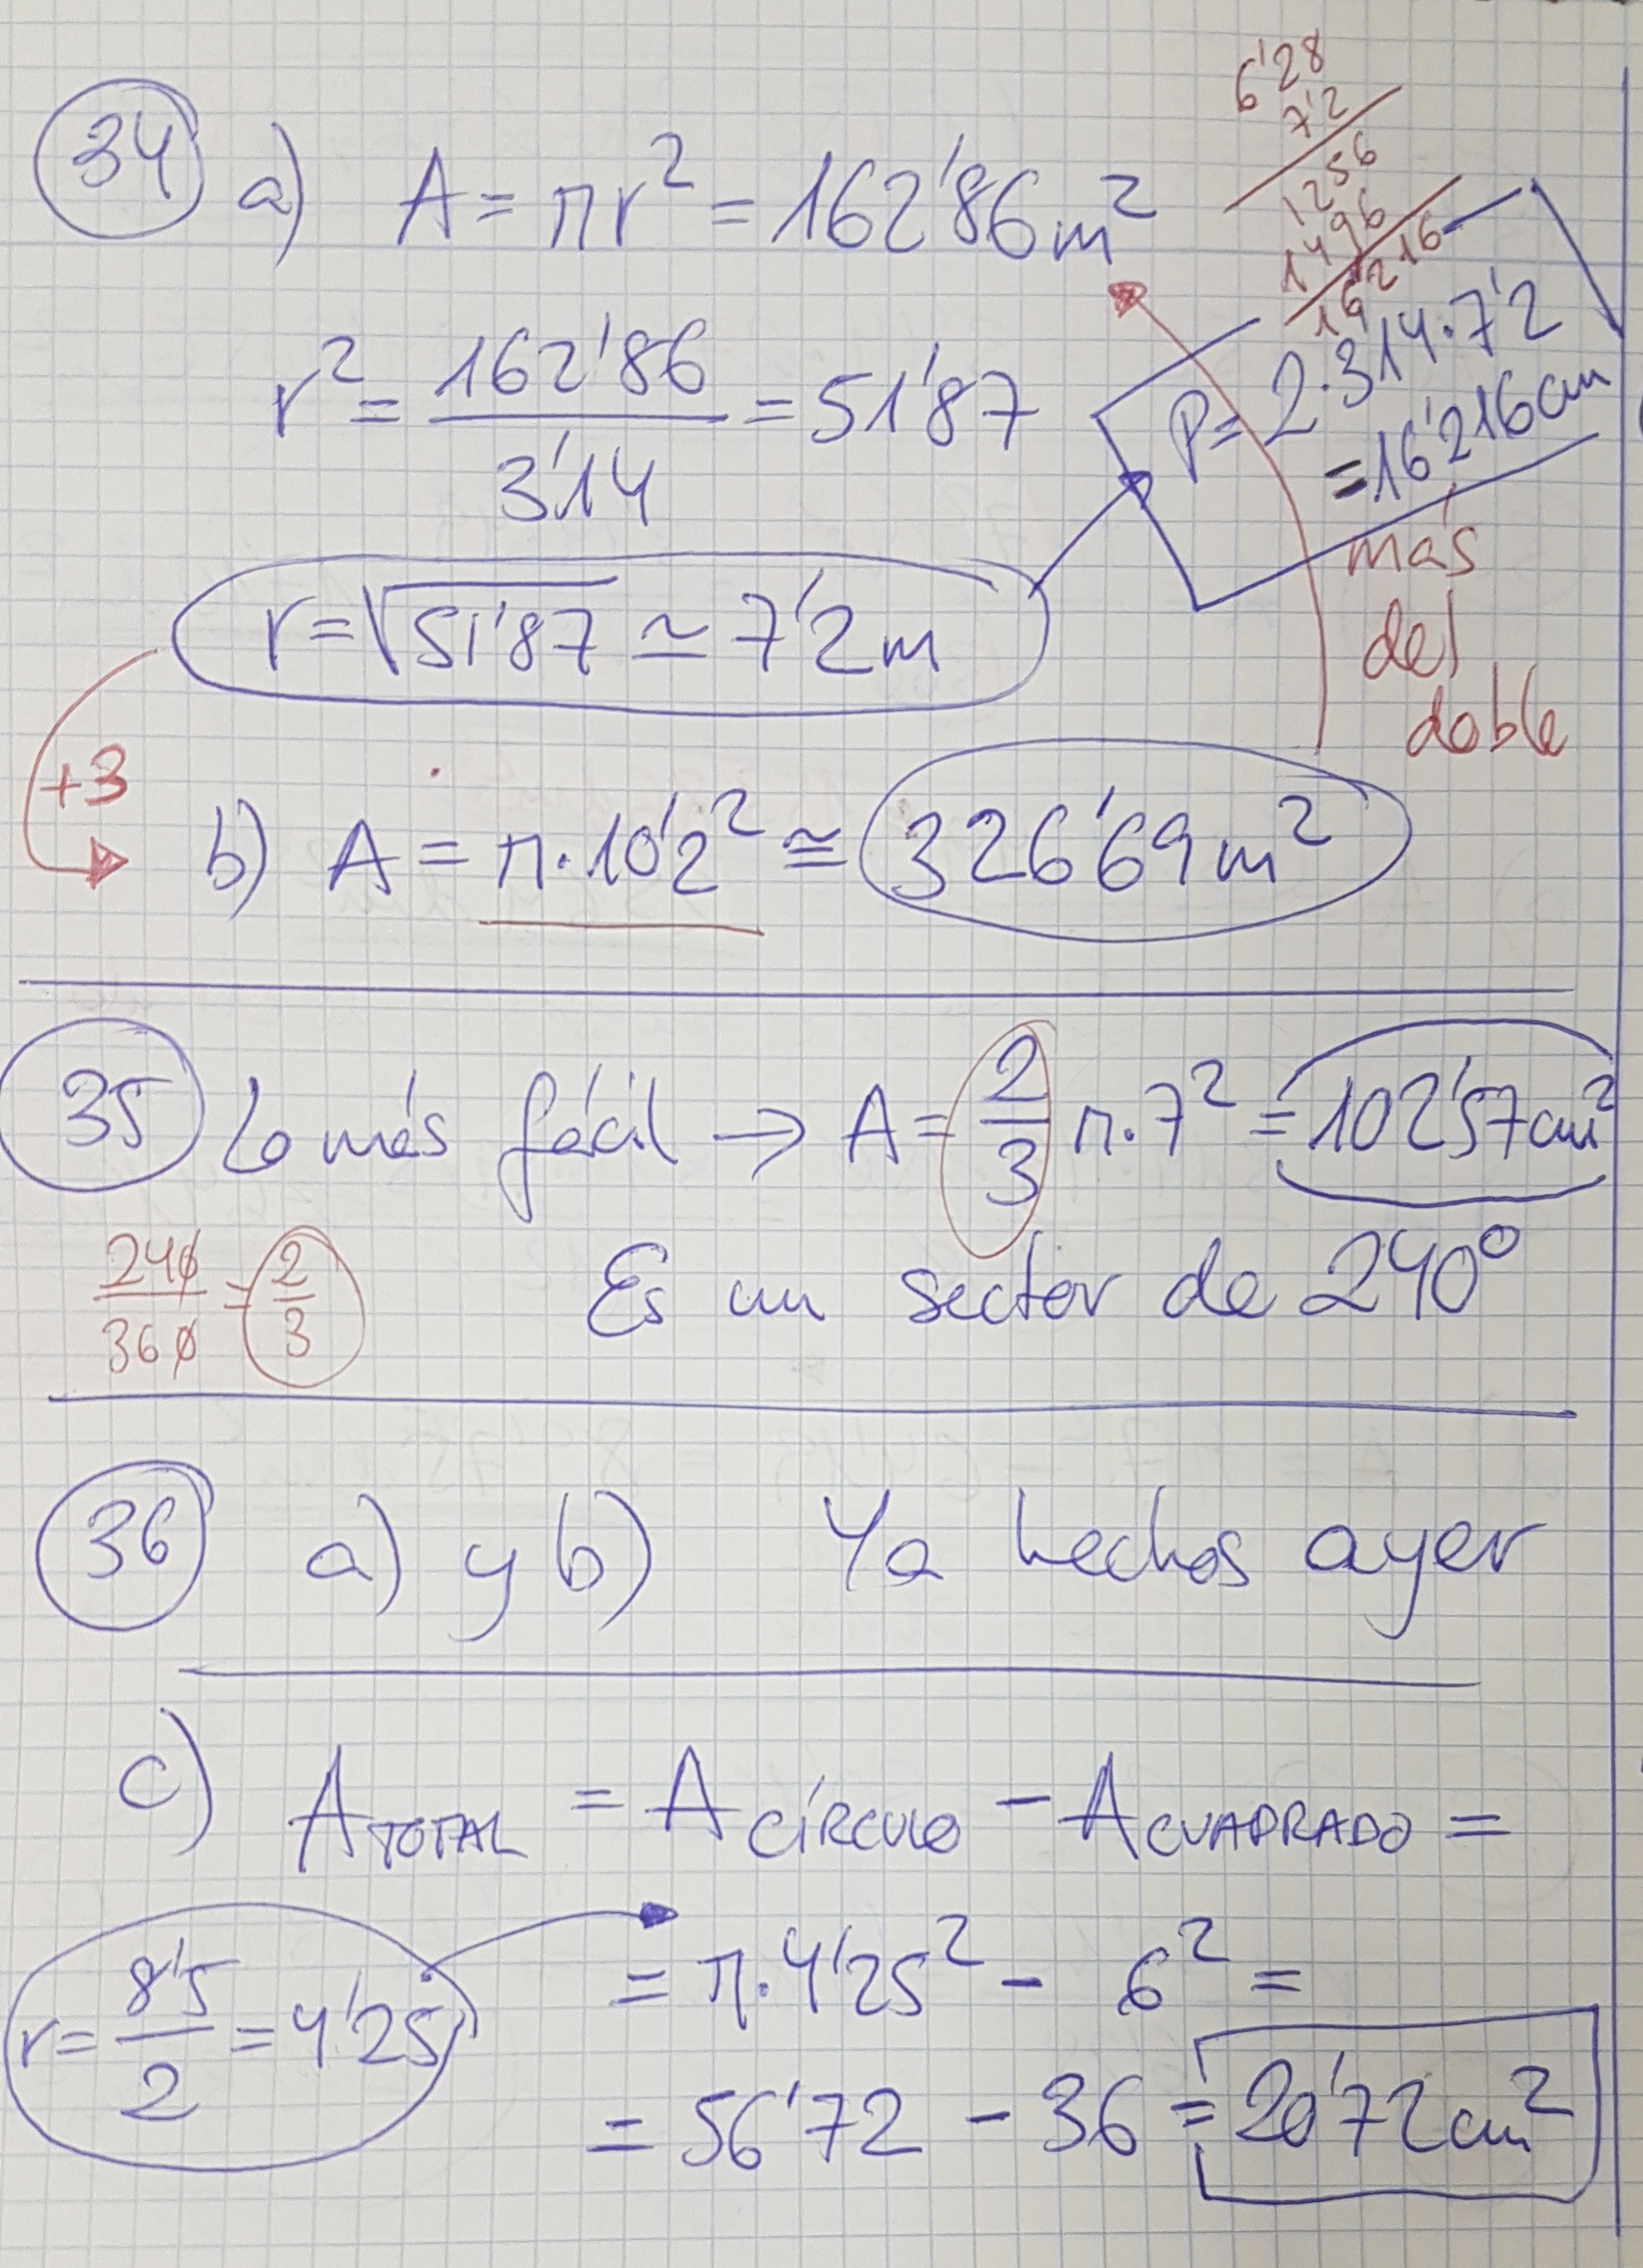 34 a) A = πr² = 162'86 m²
6'28
7'2
1256
1496
16'216
r² = 162'86 / 3'14 = 51'87
P = 2·3'14·7'2
= 16'216 cm
r = √51'87 ≃ 7'2 m
más
del
doble
+3
b) A = π·10'2² ≅ 326'69 m²
35 Lo más fácil → A = 2/3 π·7² = 102'57 cm²
240/360 = 2/3
Es un sector de 240º
36 a) y b) Ya hechos ayer
c) A TOTAL = A CÍRCULO - A CUADRADO =
r = 8'5/2 = 4'25
= π·4'25² - 6² =
= 56'72 - 36 = 20'72 cm²